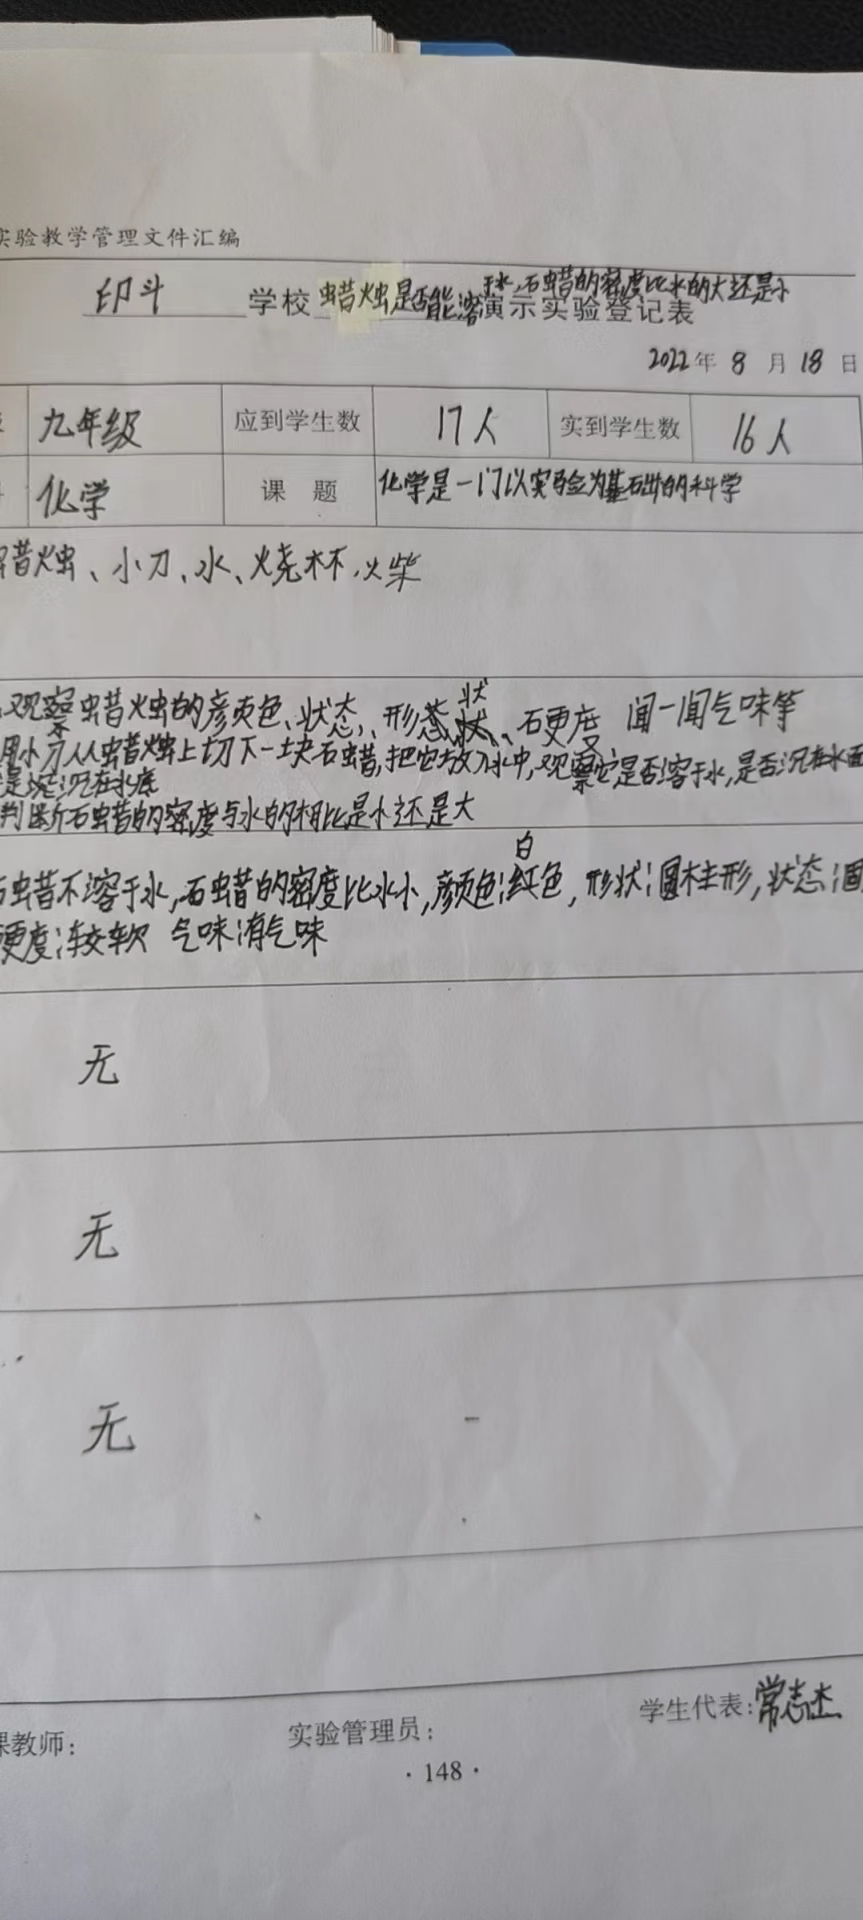 实验教学管理文件汇编
印斗 学校 蜡烛是否能溶于水,石蜡的密度比水的大还是小 演示实验登记表
2022年 8 月 18 日
九年级 应到学生数 17人 实到学生数 16人
化学 课 题 化学是一门以实验为基础的科学
蜡烛、小刀、水、烧杯、火柴
观察蜡烛的颜色、状态、形状、硬度 闻一闻气味等
用小刀从蜡烛上切下一块石蜡,把它放入水中,观察它是否溶于水,是否沉在水面
是沉在水底
判断石蜡的密度与水的相比是小还是大
石蜡不溶于水,石蜡的密度比水小,颜色:白色,形状:圆柱形,状态:固
硬度:较软 气味:有气味
无
无
无
课教师: 实验管理员: 学生代表:常志杰
·148·